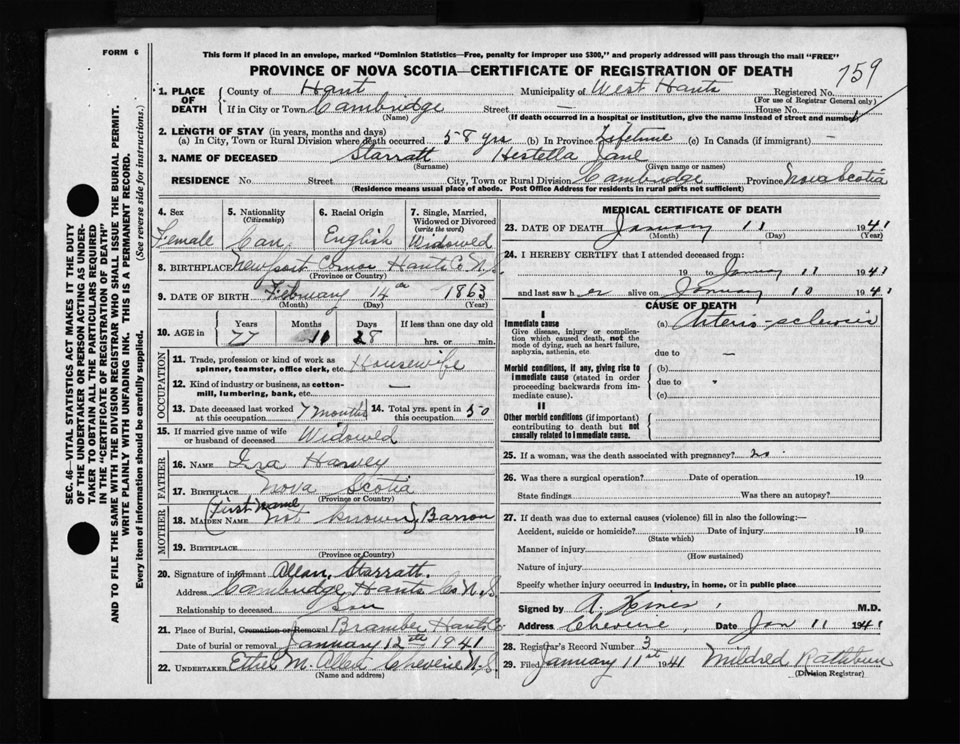 FORM 6
This form if placed in an envelope, marked "Dominion Statistics—Free, penalty for improper use $300," and properly addressed will pass through the mail "FREE"
PROVINCE OF NOVA SCOTIA—CERTIFICATE OF REGISTRATION OF DEATH
759
1. PLACE OF DEATH
County of Hant Municipality of West Hants Registered No.
(For use of Registrar General only)
If in City or Town Cambridge Street — House No.
(Name) (If death occurred in a hospital or institution, give the name instead of street and number)
2. LENGTH OF STAY (in years, months and days)
(a) In City, Town or Rural Division where death occurred 58 yrs (b) In Province Lifetime (c) In Canada (if immigrant) —
3. NAME OF DECEASED Starratt Hestella Jane
(Surname) (Given name or names)
RESIDENCE No. Street City, Town or Rural Division Cambridge Province Nova Scotia
(Residence means usual place of abode. Post Office Address for residents in rural parts not sufficient)
4. Sex Female
5. Nationality (Citizenship) Can.
6. Racial Origin English
7. Single, Married, Widowed or Divorced (write the word) Widowed
8. BIRTHPLACE Newport Corner Hants Co N.S.
(Province or Country)
9. DATE OF BIRTH February 14th 1863
(Month) (Day) (Year)
10. AGE in Years 77 Months 10 Days 28 If less than one day old hrs. or min.
OCCUPATION
11. Trade, profession or kind of work as spinner, teamster, office clerk, etc. Housewife
12. Kind of industry or business, as cotton-mill, lumbering, bank, etc. —
13. Date deceased last worked at this occupation 7 months
14. Total yrs. spent in this occupation 50
15. If married give name of wife or husband of deceased Widowed
FATHER
16. NAME Ira Harvey
17. BIRTHPLACE Nova Scotia
(Province or Country)
MOTHER
18. MAIDEN NAME (First name not known) Barron
19. BIRTHPLACE
(Province or Country)
20. Signature of informant Allan Starratt.
Address Cambridge Hants Co N.S.
Relationship to deceased Son
21. Place of Burial, Cremation or Removal Bramber Hants Co
Date of burial or removal January 12th 1941
22. UNDERTAKER Ethel M. Allen Cheverie N.S.
(Name and address)
MEDICAL CERTIFICATE OF DEATH
23. DATE OF DEATH January 11 1941
(Month) (Day) (Year)
24. I HEREBY CERTIFY that I attended deceased from:
19 to January 11 1941
and last saw her alive on January 10 1941
CAUSE OF DEATH
I
Immediate cause (a) Arterio-sclerosis
Give disease, injury or complication which caused death, not the mode of dying, such as heart failure, asphyxia, asthenia, etc
due to —
Morbid conditions, if any, giving rise to immediate cause (stated in order proceeding backwards from immediate cause).
(b)
due to
(c)
II
Other morbid conditions (if important) contributing to death but not causally related to immediate cause.
25. If a woman, was the death associated with pregnancy? no
26. Was there a surgical operation? Date of operation 19
State findings Was there an autopsy?
27. If death was due to external causes (violence) fill in also the following:—
Accident, suicide or homicide? Date of injury 19
(State which)
Manner of injury
(How sustained)
Nature of injury
Specify whether injury occurred in industry, in home, or in public place
Signed by A. M.D.
Address Cheverie, Date Jan 11 1941
28. Registrar's Record Number 3
29. Filed January 11st 1941 Mildred Rathbun
(Division Registrar)
SEC. 46—VITAL STATISTICS ACT MAKES IT THE DUTY
OF THE UNDERTAKER OR PERSON ACTING AS UNDER-
TAKER TO OBTAIN ALL THE PARTICULARS REQUIRED
IN THE "CERTIFICATE OF REGISTRATION OF DEATH"
AND TO FILE THE SAME WITH THE DIVISION REGISTRAR WHO SHALL ISSUE THE BURIAL PERMIT.
WRITE PLAINLY WITH UNFADING INK. THIS IS A PERMANENT RECORD.
Every item of information should be carefully supplied. (See reverse side for instructions.)